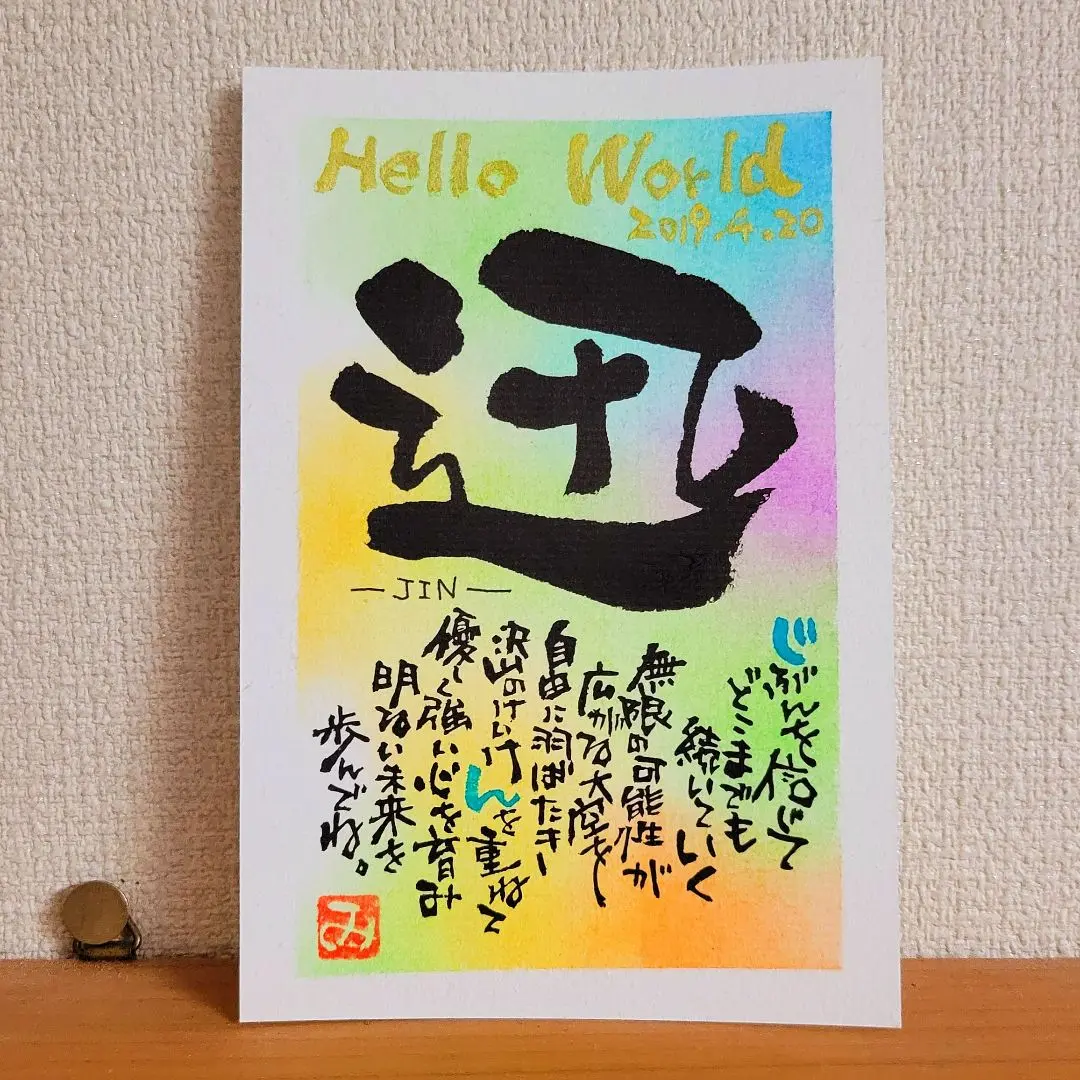 Hello World
2019.4.20
迅
—JIN—
じぶんを信じて
どこまでも
続いていく
無限の可能性が
広がる大空を
自由に羽ばたき
沢山のけいけんを重ねて
優しく強い心を育み
明るい未来を
歩んでね。